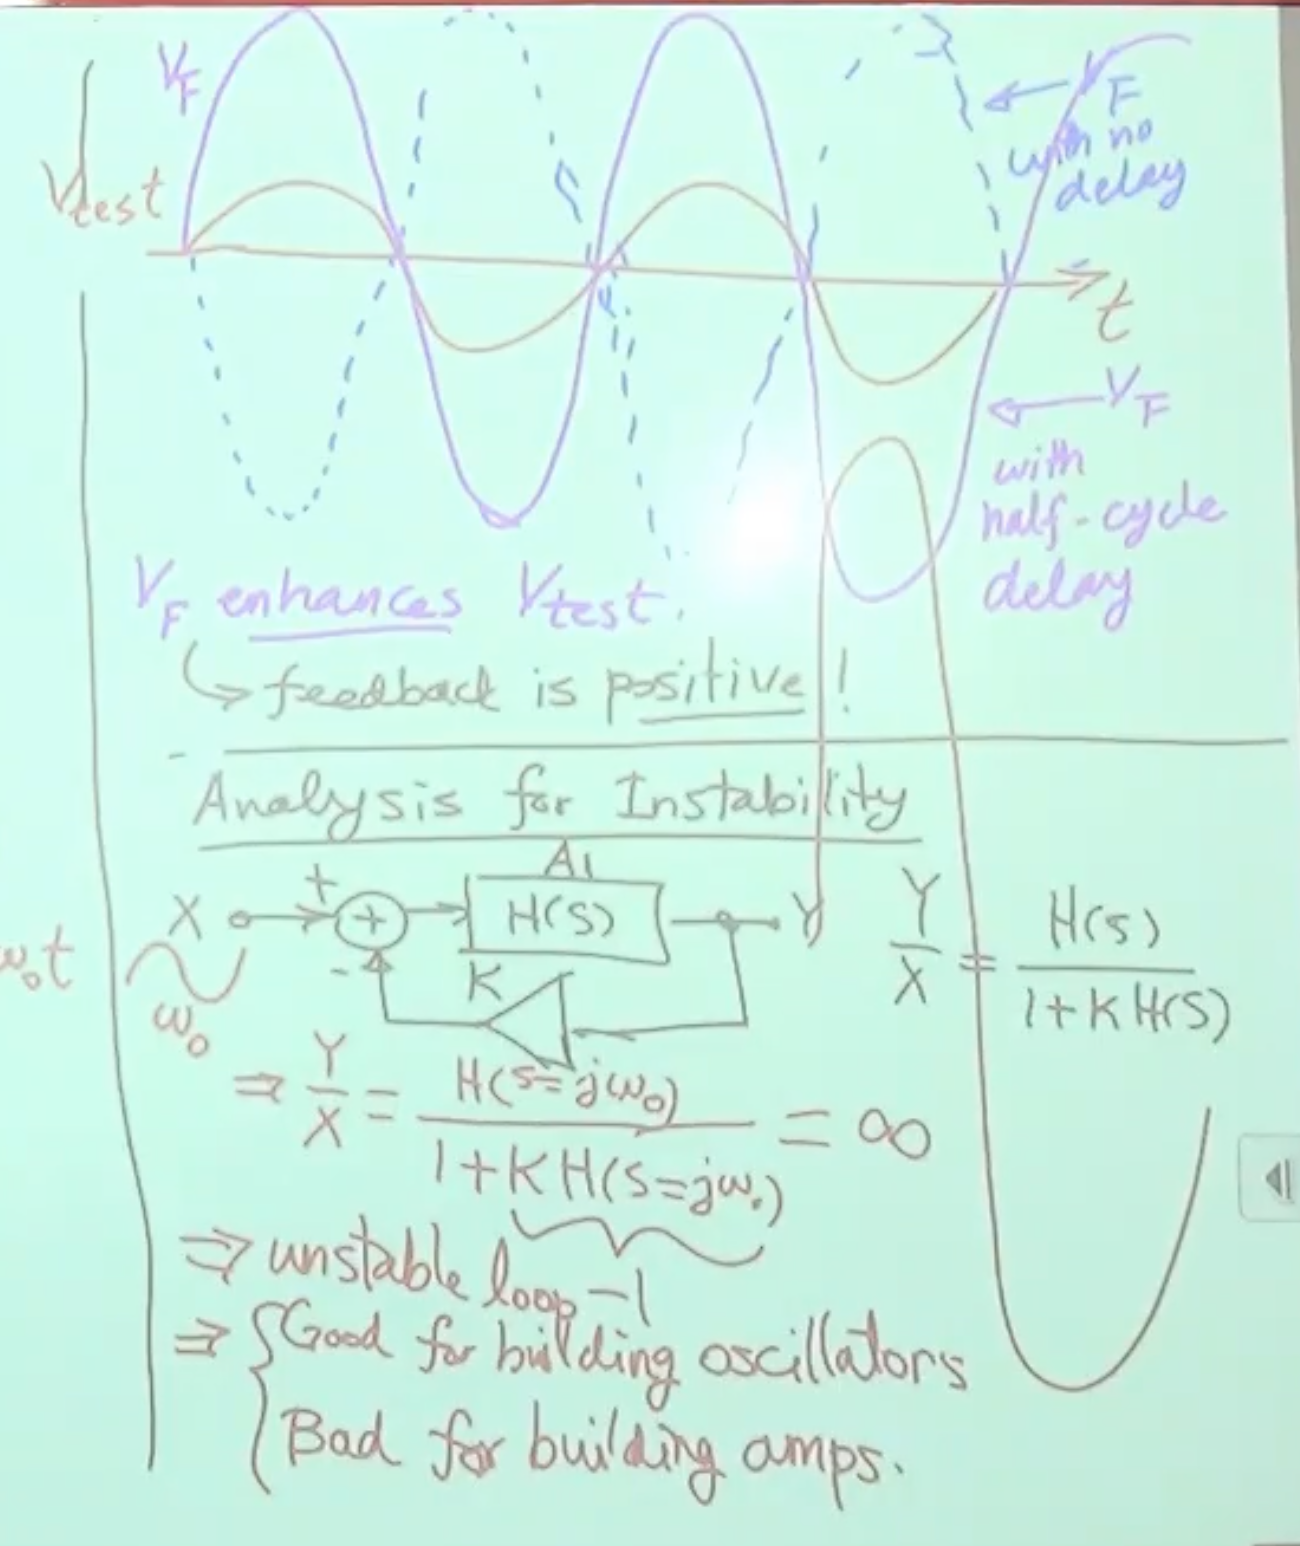 V_F
V_test
V_F
with no
delay
t
V_F
with
half-cycle
delay
V_F enhances V_test.
↳ feedback is positive!
Analysis for Instability
A1
X + + H(s) Y
-
K
ω₀t
ω₀
Y/X = H(s)/(1+KH(s))
⇒ Y/X = H(s=jω₀)/(1+KH(s=jω₀)) = ∞
⇒ unstable loop -1
⇒ { Good for building oscillators
Bad for building amps.